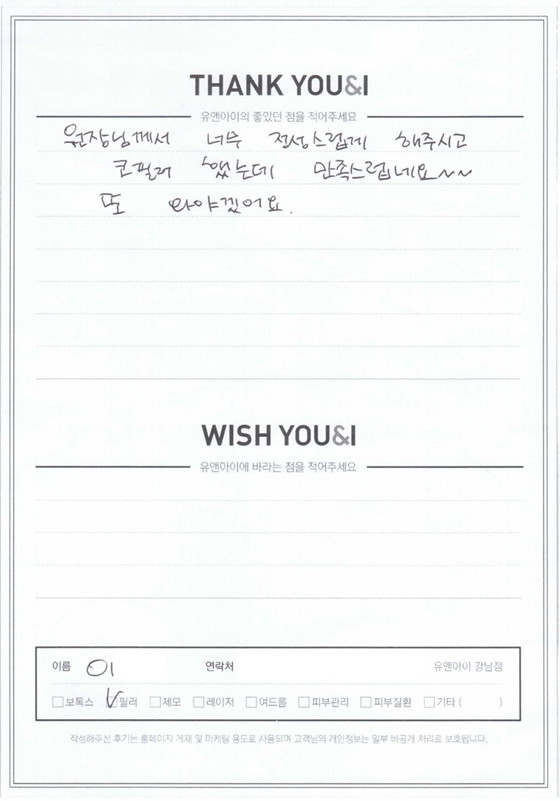 THANK YOU&I
유앤아이의 좋았던 점을 적어주세요
원장님께서 너무 정성스럽게 해주시고
코필러 했는데 만족스럽네요~~
또 와야겠어요.
WISH YOU&I
유앤아이에 바라는 점을 적어주세요
이름 이 연락처 유앤아이 강남점
보톡스 필러 제모 레이저 여드름 피부관리 피부질환 기타 ( )
작성해주신 후기는 홈페이지 게재 및 마케팅 용도로 사용되며 고객님의 개인정보는 일부 비공개 처리로 보호됩니다.